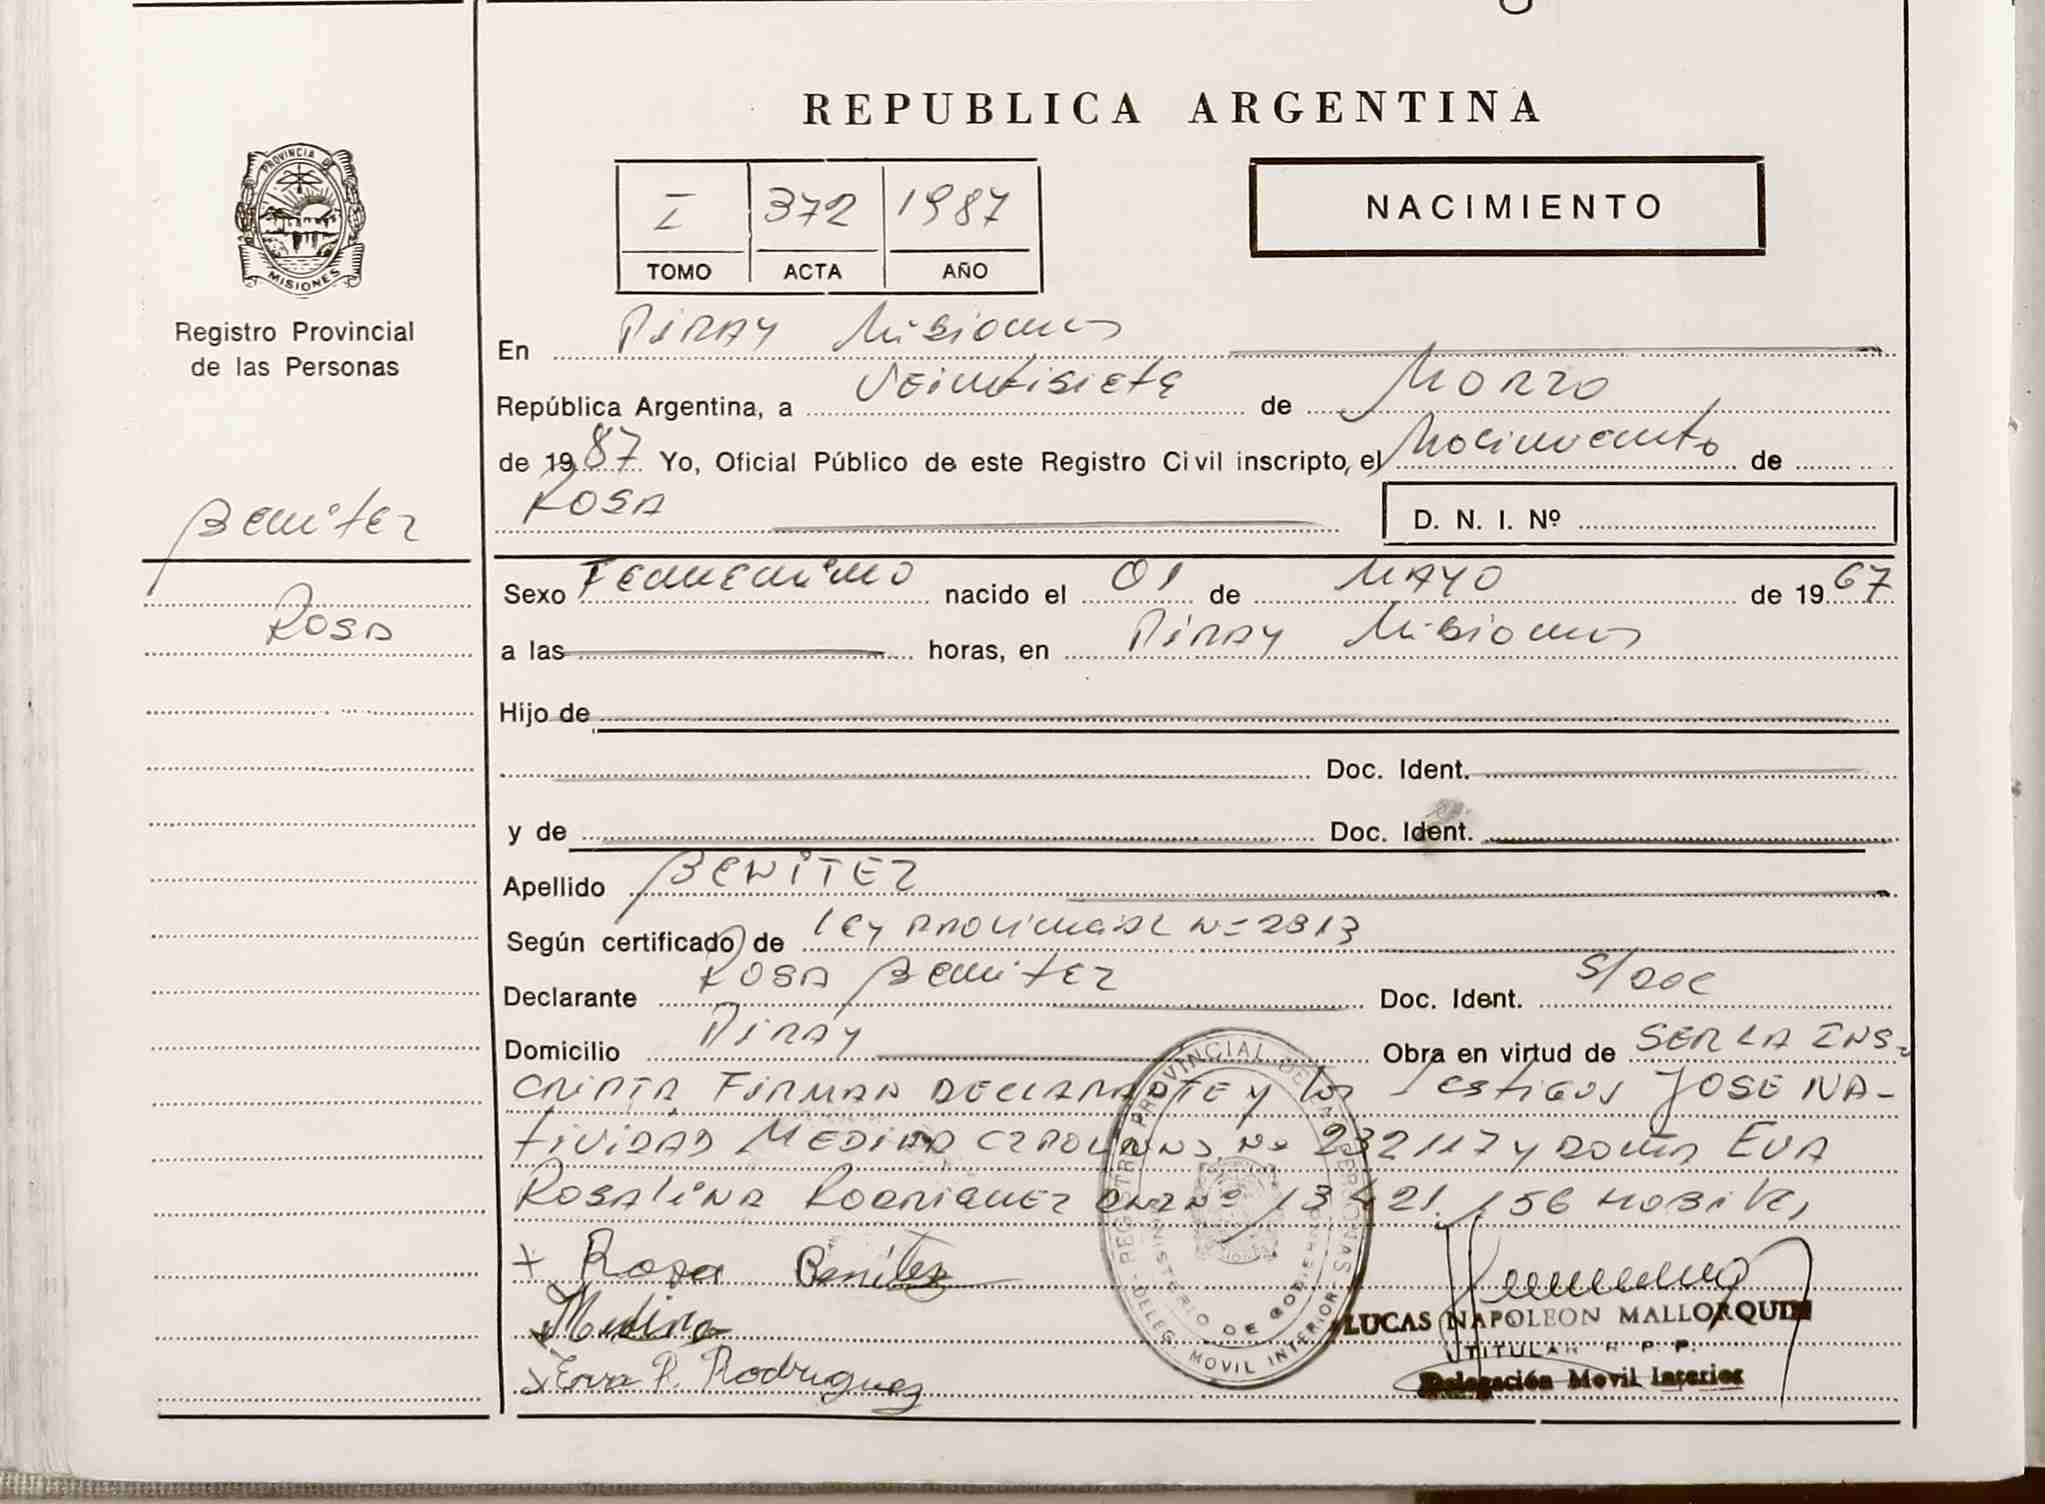 REPUBLICA ARGENTINA
PROVINCIA DE MISIONES
Registro Provincial
de las Personas
Benitez
Rosa
I 372 1987
TOMO ACTA AÑO
NACIMIENTO
En Piray Misiones
República Argentina, a Veintisiete de Marzo
de 1987 Yo, Oficial Público de este Registro Civil inscripto, el Nacimiento de
ROSA D. N. I. Nº
Sexo Femenino nacido el 01 de MAYO de 1967
a las horas, en Piray Misiones
Hijo de
Doc. Ident.
y de Doc. Ident.
Apellido BENITEZ
Según certificado de Ley Provincial Nº 2813
Declarante Rosa Benitez Doc. Ident. S/DOC
Domicilio Piray Obra en virtud de SER LA INS-
CRIPTA, FIRMAN DECLARANTE y los Testigos JOSE NA-
tividad MEDINA Nº 232117 y Doña EVA
Rosalina Rodriguez DNI Nº 13.421.156 Habiles
+ Rosa Benitez
x Medina
x Eva R. Rodriguez
REGISTRO PROVINCIAL DE LAS PERSONAS
MINISTERIO DE GOBIERNO
DELEG. MOVIL INTERIOR
LUCAS NAPOLEON MALLORQUIN
TITULAR R. P. P.
Delegación Movil Interior